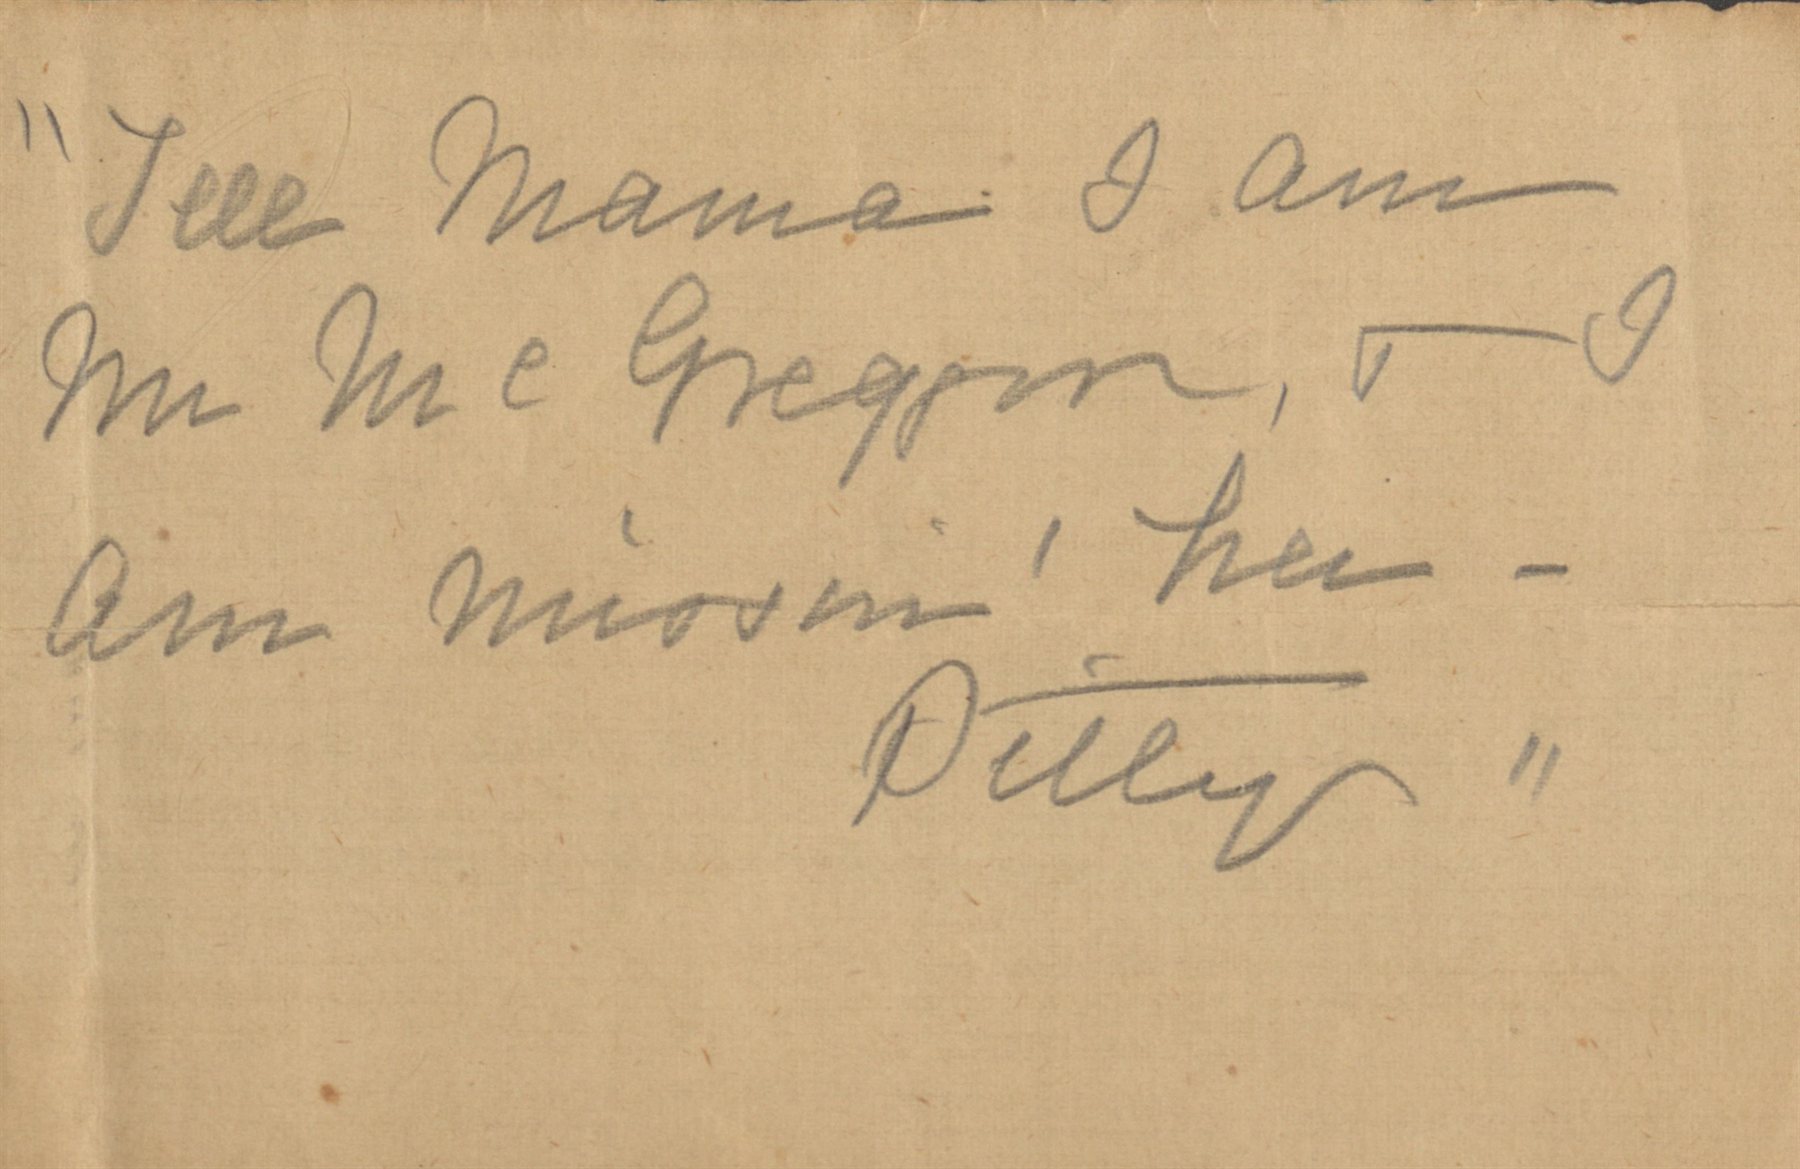 "Tell Mama I am
Mr McGregor, + I
am missin' her -
Billy"